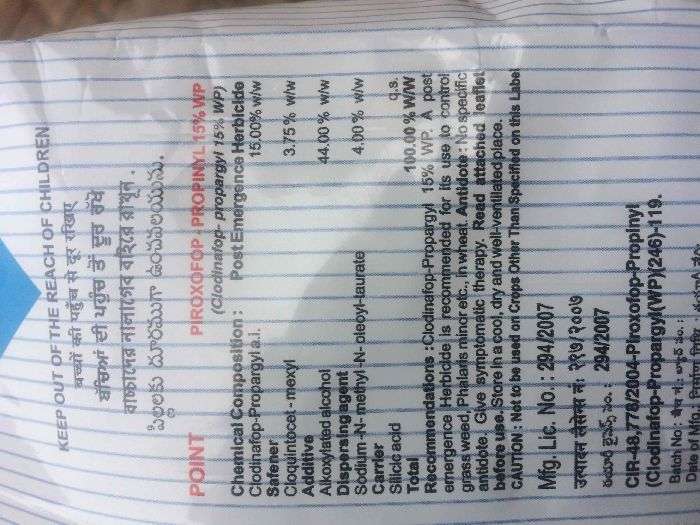 KEEP OUT OF THE REACH OF CHILDREN
बच्चों की पहुँच से दूर रखिए
ਬੱਚਿਆਂ ਦੀ ਪਹੁੰਚ ਤੋਂ ਦੂਰ ਰੱਖੋ
বাচ্চাদের নাগালের বাইরে রাখুন .
పిల్లలకు దూరముగా ఉంచవలయును.
POINT PROXOFOP - PROPINYL 15% WP
(Clodinafop- propargyl 15% WP)
Chemical Composition : Post Emergence Herbicide
Clodinafop-Propargyl a.i. 15.00% w/w
Safener
Cloquintocet - mexyl 3.75 % w/w
Additive
Alkoxylated alcohol 44.00 % w/w
Dispersing agent
Sodium -N- methyl -N- oleoyl-taurate 4.00 % w/w
Carrier
Silicic acid q.s.
Total 100.00 % W/W
Recommendations : Clodinafop-Propargyl 15% WP. A post
emergence Herbicide is recommended for its use to control
grass weed, Phalaris minor etc., in wheat. Antidote : No specific
antidote. Give symptomatic therapy. Read attached leaflet
before use. Store in a cool, dry and well-ventilated place.
CAUTION : Not to be used on Crops Other Than Specified on this Label
Mfg. Lic. No : 294/2007
उत्पादन लैसेन्स नं:
294/2007
CIR-48,778/2004-Piroxofop-Propinyl
(Clodinafop-Propargyl(WP)(246)-119.
Batch No :
Date of Mfg.